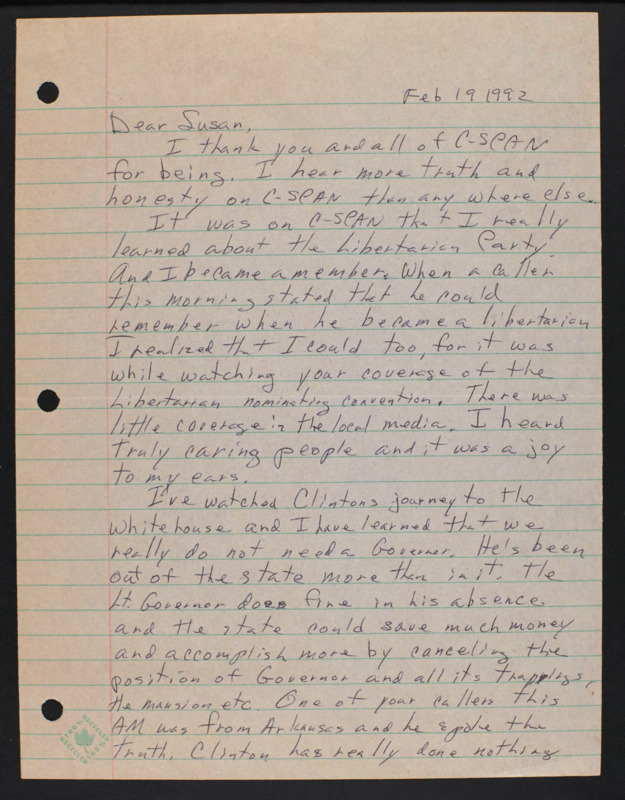 Feb 19 1992
Dear Susan,
I thank you and all of C-SPAN
for being. I hear more truth and
honesty on C-SPAN than any where else.
It was on C-SPAN that I really
learned about the Libertarian Party.
And I became a member. When a caller
this morning stated that he could
remember when he became a libertarian
I realized that I could too, for it was
while watching your coverage of the
Libertarian nominating convention. There was
little coverage in the local media. I heard
truly caring people and it was a joy
to my ears.
I've watched Clintons journey to the
Whitehouse and I have learned that we
really do not need a Governor. He's been
out of the state more than in it. The
Lt. Governor does fine in his absence
and the state could save much money
and accomplish more by canceling the
position of Governor and all its trappings,
the mansion etc. One of your callers this
AM was from Arkansas and he spoke the
truth. Clinton has really done nothing